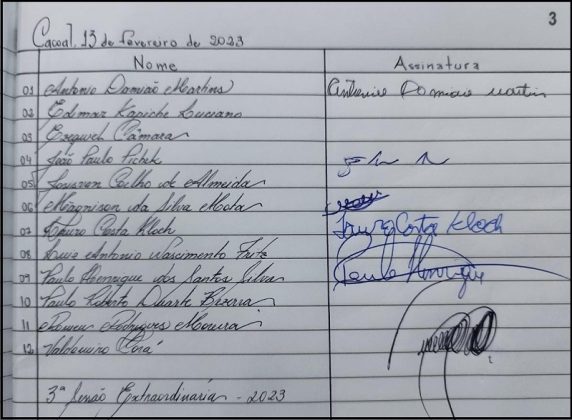 3
Cacoal, 13 de Fevereiro de 2023
Nome Assinatura
01 Antonio Damião Martins Antonio Damiao Martin
02 Edimar Kapiche Luciano
03 Ezequiel Câmara
04 João Paulo Pichek
05 Josivan Coelho de Almeida
06 Magnison da Silva Mota
07 Lauro Costa Kloch Lauro Costa Kloch
08 Luiz Antonio Nascimento Fritz
09 Paulo Henrique dos Santos Silva Paulo Henrique
10 Paulo Roberto Duarte Bezerra
11 Romeu Rodrigues Moreira
12 Valdomiro Corá
3ª Sessão Extraordinária - 2023